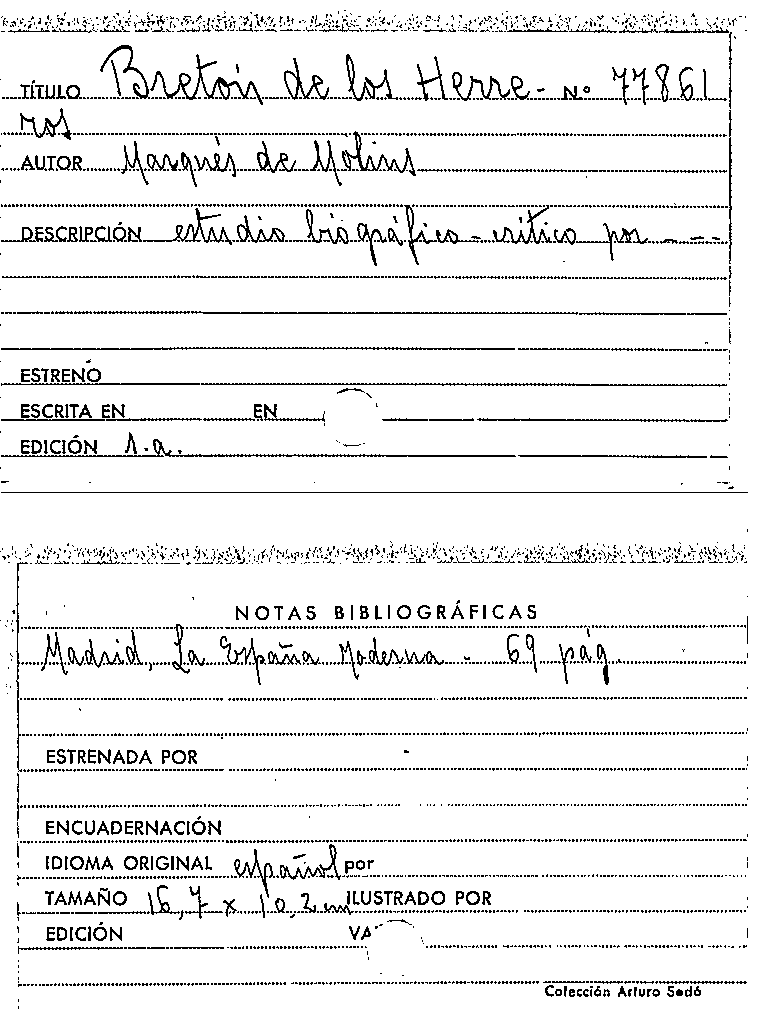 TÍTULO Bretón de los Herre- Nº 77861
ros
AUTOR Marqués de Molins
DESCRIPCIÓN estudio biográfico-crítico por ----
ESTRENO
ESCRITA EN EN
EDICIÓN s.a.
NOTAS BIBLIOGRÁFICAS
Madrid, La España Moderna - 69 pág.
ESTRENADA POR
ENCUADERNACIÓN
IDIOMA ORIGINAL español por
TAMAÑO 16,7 x 10,2 cm ILUSTRADO POR
EDICIÓN VA
Colección Arturo Sedó